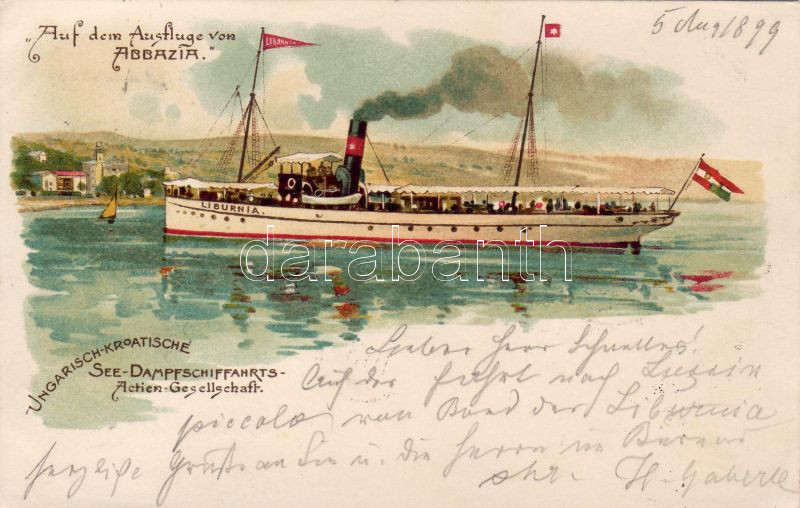 „Auf dem Ausfluge von
ABBAZIA."
5 Aug 1899
LIBURNIA
LIBURNIA.
darabanth
UNGARISCH-KROATISCHE
SEE-DAMPFSCHIFFAHRTS-
Actien-Gesellschaft.
Lieber Herr
Auf der Fahrt nach Lussin
piccolo von Bord der Liburnia
herzliche Grüße an Sie u. die Herrn im Bureau
Ihr H.